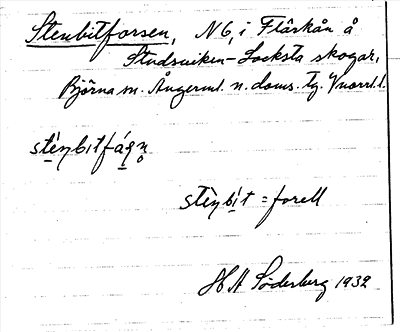 Stenbitforsen, N 6, i Flärkån å
Studsviken-Locksta skogar,
Björna sn. Ångerml. n. doms. tg. Vnorrl. l.
stèṇbıtfá
stèṇbít = forell
H A Söderberg 1932